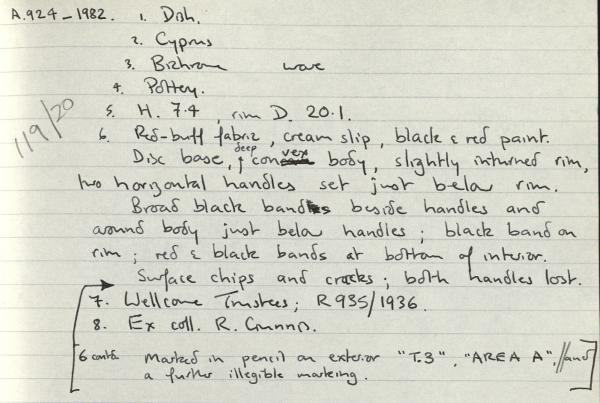 A.924-1982. 1. Dish.
2. Cyprus
3. Bichrome ware
4. Pottery.
5. H. 7.4, rim D. 20.1.
119/20
6. Red-buff fabric, cream slip, black & red paint.
Disc base, deep convex body, slightly inturned rim,
two horizontal handles set just below rim.
Broad black bands beside handles and
around body just below handles; black band on
rim; red & black bands at bottom of interior.
Surface chips and cracks; both handles lost.
7. Wellcome Trustees; R 935/1936.
8. Ex coll. R. Gunnis.
6 contd. Marked in pencil on exterior "T.3", "AREA A", and
a further illegible marking.